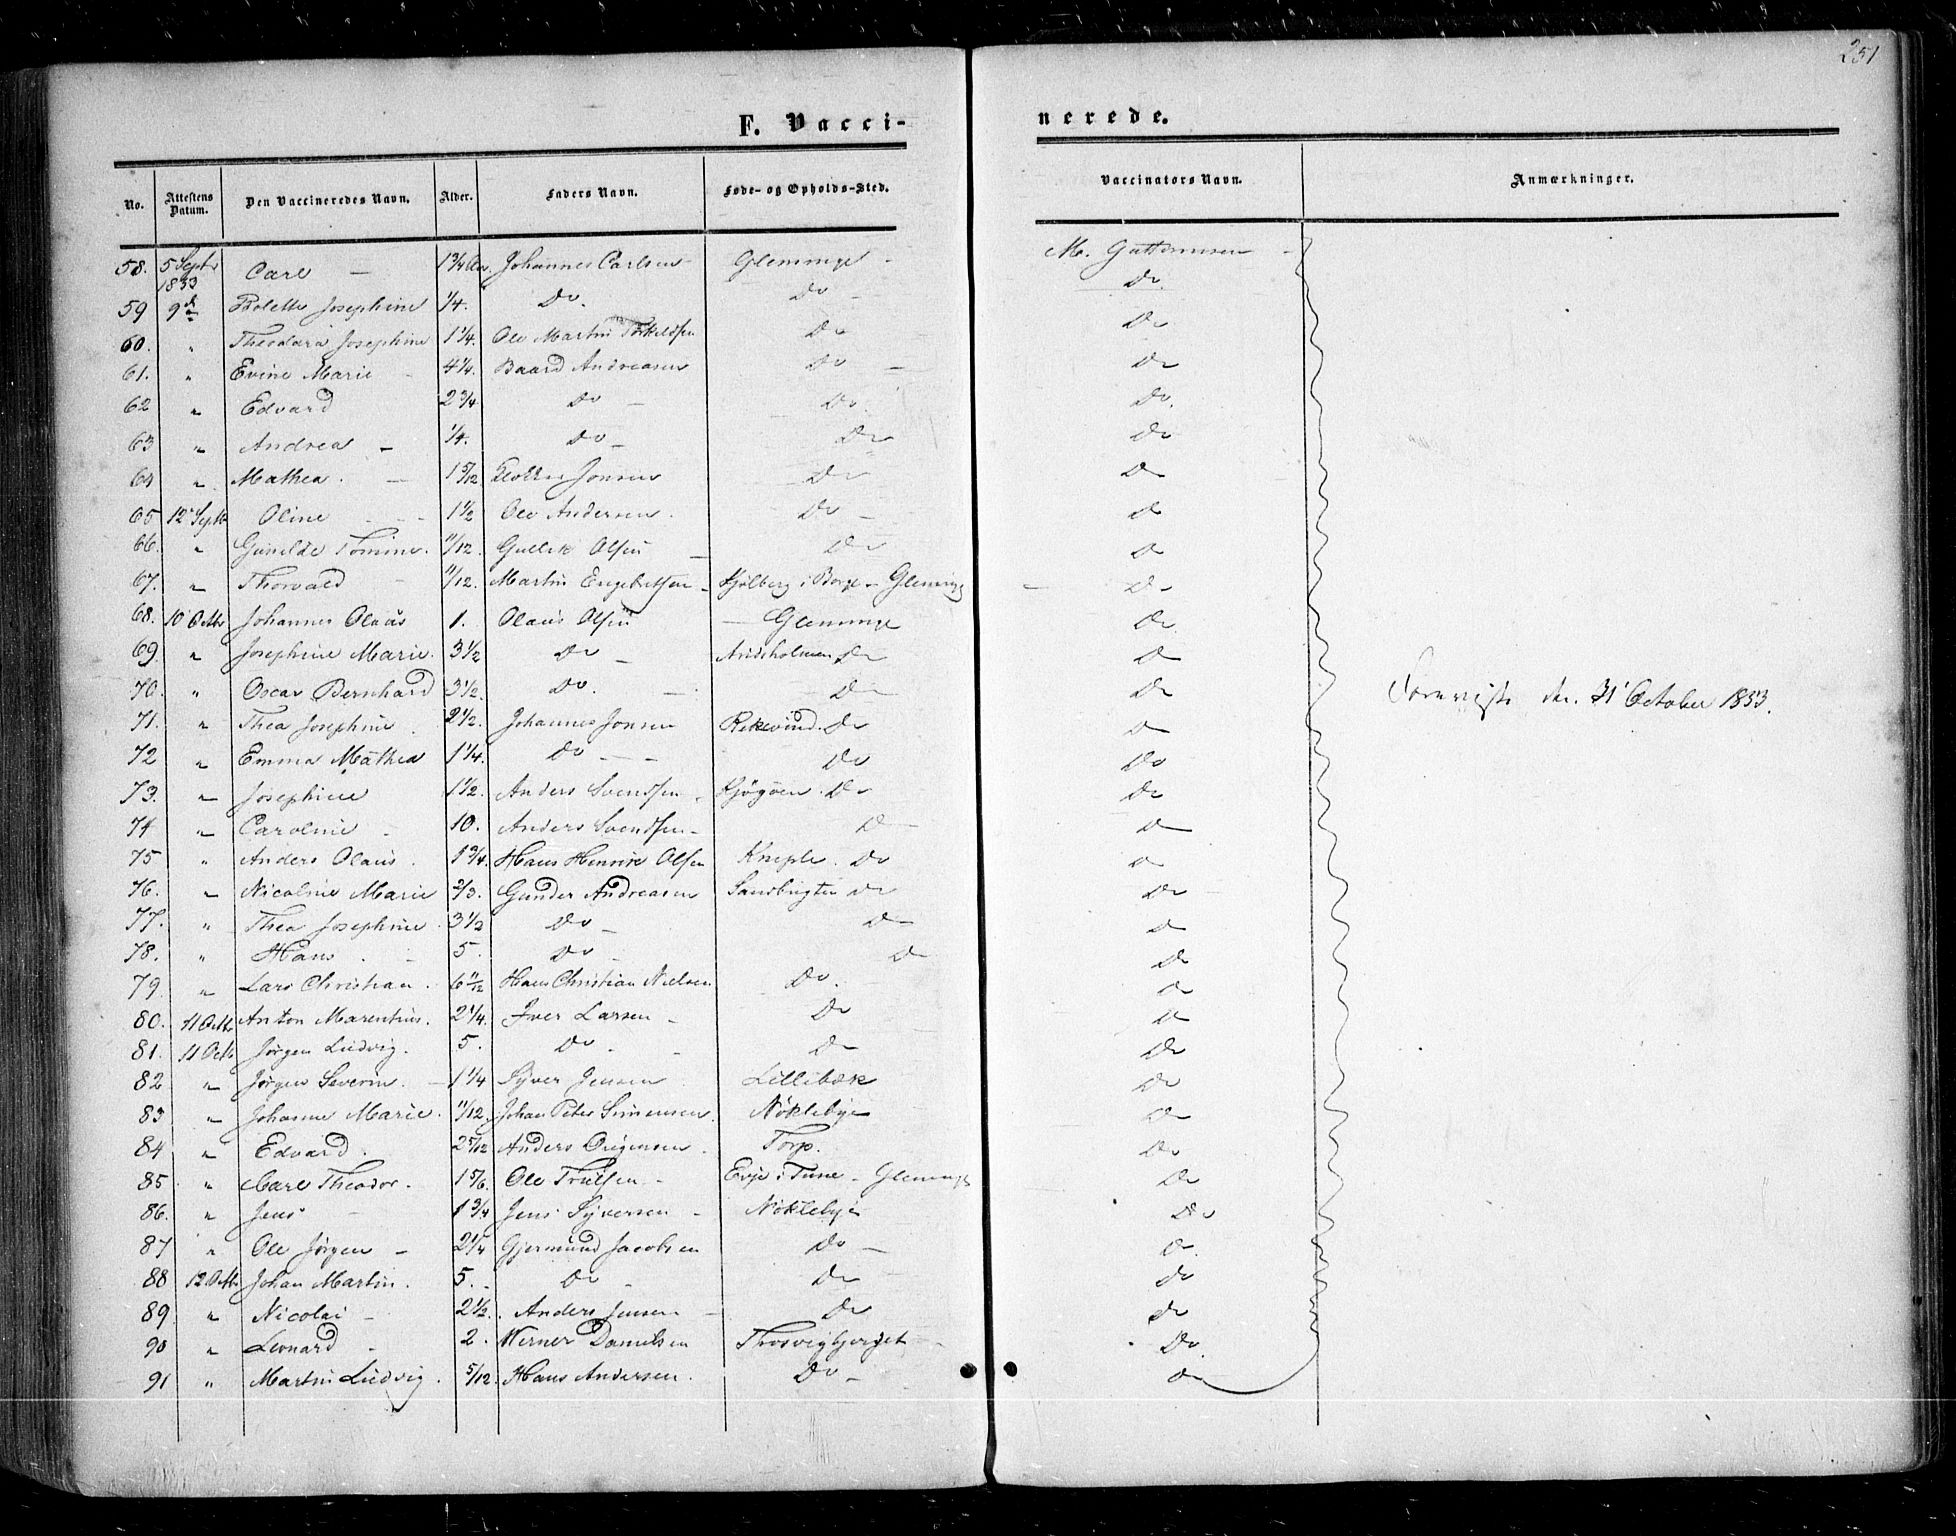 251
F. Vacci-
nerede.
No. Attestens Datum. Den Vaccineredes Navn. Alder. Faders Navn. Føde- og Opholds-Sted. Vaccinators Navn. Anmærkninger.
58. 5 Septr 1853 Carl - 1 3/4 Johannes Carlsen - Glemminge - M.
59 9de Bolette Josephine 1/4. Do. Do - Do.
60. " Theodora Josephine 1 1/4. Ole Martin Torkildsen Do Do
61. " Evine Marie - 4 1/4. Baard Andreasen Do - Do
62 " Edvard 2 3/4 Do - Do. Do.
63 " Andrea - 1/4. Do - Do Do
64 " Mathea. - 1 5/12 Jonsen Do Do
65 12 Septr Oline - - 1 1/2 Ole Andersen. Do - Do
66. " Gunilde Tomine. 11/12. Gullik Olsen - Do Do
67. " Thorvald - 11/12. Martin Engebretsen - Kjølberg i Borge - Glemminge - Do
68. 10 Octbr Johannes Olaüs 1. Olaüs Olsen - Glemminge Do
69. " Josephine Marie. 3 1/2 Do - Arisholmen Do Do
70. " Oscar Bernhard 3 1/2. Do. - Do Do
71. " Thea Josephine. 2 1/2. Johannes Jonsen Rekevind. Do Do
72 " Emma Mathea 1 1/4. Do - - Do Do
73. " Josephine 1 1/2. Anders Svendsen - Kjøgøen. Do Do
74 " Caroline - 10. Anders Svendsen - Do Do
75 " Anders Olaüs. 1 3/4. Hans Henrik Olsen Kniple. Do Do
76. " Nicoline Marie 2/3. Gunder Andreasen Sandbugten Do Do
77. " Thea Josephine. 3 1/2 Do - Do Do
78. " Hans. - 5. Do - Do Do
79. " Lars Christian. 6 11/12 Hans Christian Nielsen Do. Do
80. 11 Octbr Anton Marentius. 2 1/4. Iver Larsen - Do Do
81. 11 Octb Jørgen Ludvig. 5. Do. - Do Do
82 " Jørgen Severin. - 1 1/4 Syver Jensen Lillibæk Do
83 " Johanne Marie. 11/12. Johan Peter Simensen. Nøklebye Do
84 " Edvard. 2 5/12 Anders Torp. Do
85 " Carl Theodor. 1 5/6. Ole Trulsen - Evje i Tune - Glemminge Do
86. " Jens - 1 3/4 Jens Syversen - Nøklebye Do
87 " Ole Jørgen - 2 1/4 Gjermund Jacobsen Do - Do.
88 12 Octbr Johan Martin. 5. - Do - Do Do
89 " Nicolai - 2 1/2. Anders Jensen - Do Do
90 " Leonard - 2. Werner Danielsen Thorsvigbjerget - Do.
91 " Martin Ludvig. 5/12. Hans Andersen. Do - Do
den 31' October 1853.